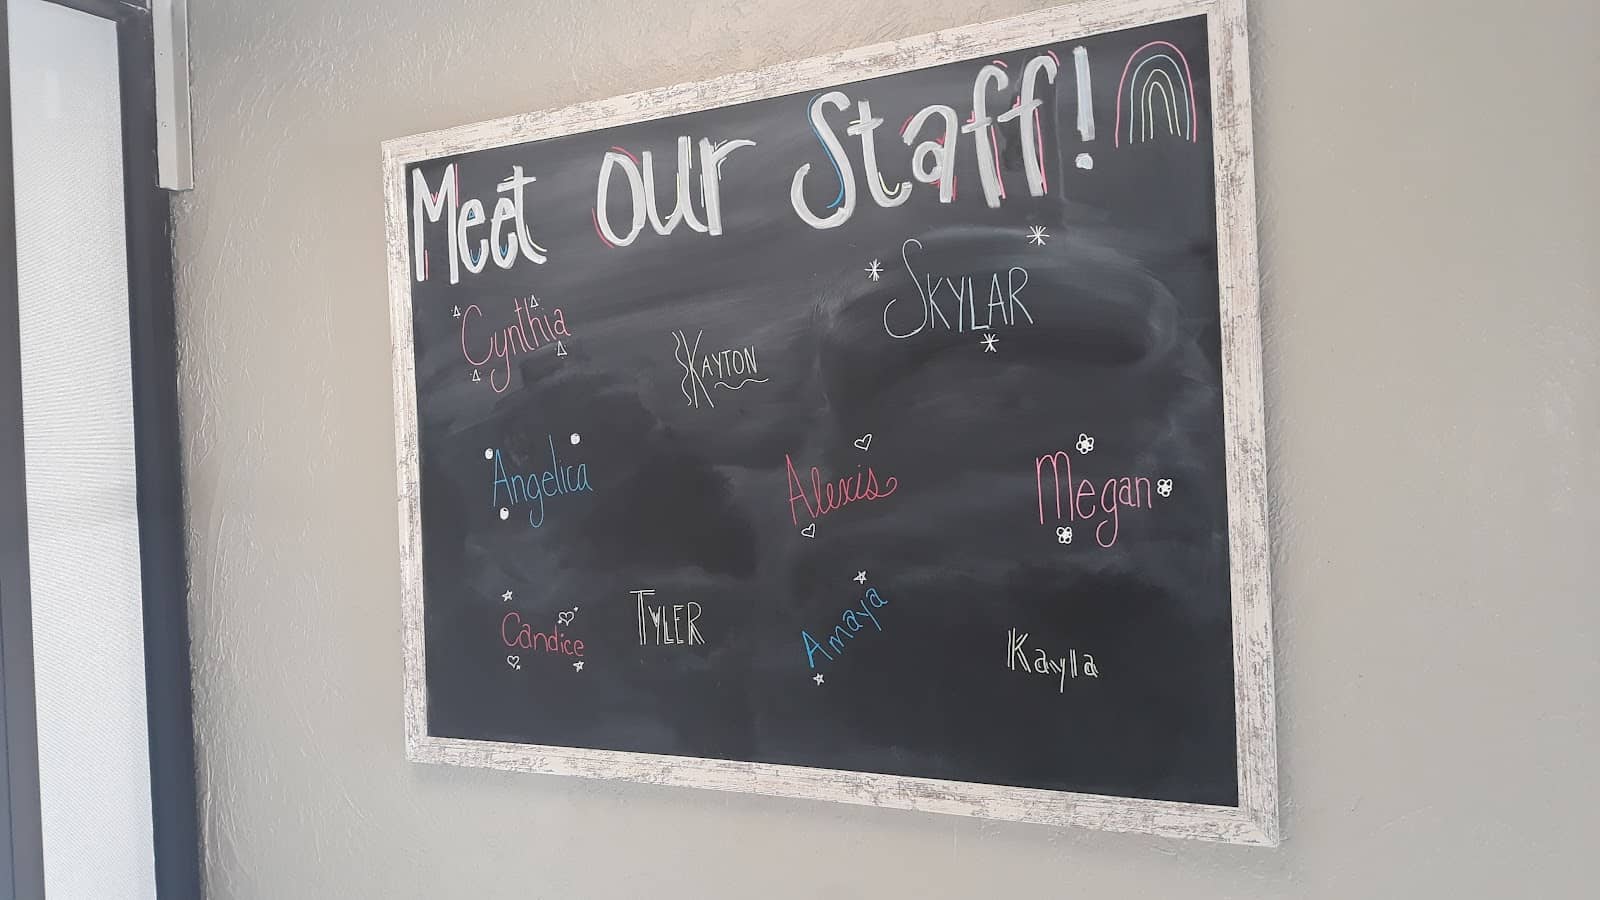 Meet our Staff!
Cynthia
KAYTON
SKYLAR
Angelica
Alexis
Megan
Candice
TYLER
Amaya
Kayla